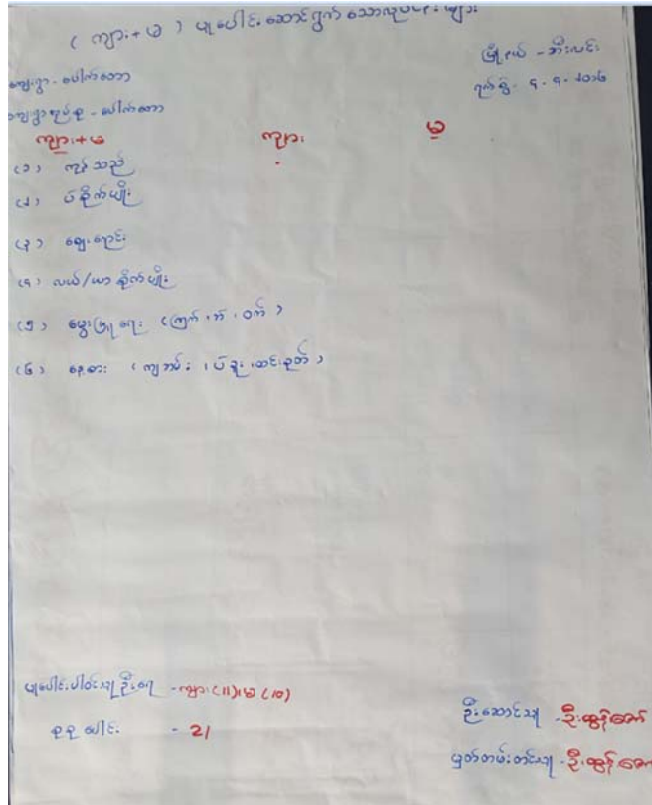 ( ကျား + မ ) ပူးပေါင်းဆောင်ရွက်သောလုပ်ငန်းများ
မြို့နယ် - ဘီးလင်း
ကျေးရွာ - ပေါက်တော
ရက်စွဲ - ၄.၄.၂၀၁၆
ကျေးရွာအုပ်စု - ပေါက်တော
ကျား+မ ကျား မ
(၁) ကုန်သည်
(၂) ပဲစိုက်ပျိုး
(၃) ဈေးရောင်း
(၄) လယ်/ယာစိုက်ပျိုး
(၅) မွေးမြူရေး (ကြက်၊ ဘဲ၊ ဝက်)
(၆) နေ့စား (ကျဘမ်း၊ ပဲခူး၊ ထင်းခုတ်)
ပူးပေါင်းပါဝင်သူဦးရေ - ကျား (11) မ (10)
စုစုပေါင်း - 21
ဦးဆောင်သူ - ဦးထွန်ဇော်
မှတ်တမ်းတင်သူ - ဦးထွန်ဇော်